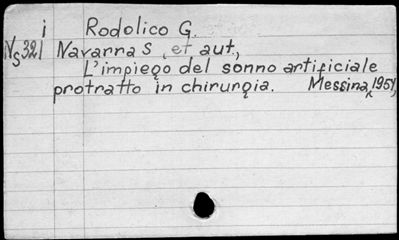 i Rodolico G.
Ns321 Navarra S, et aut.,
L'impiego del sonno artificiale
protratto in chirurgia. Messina, 1954,